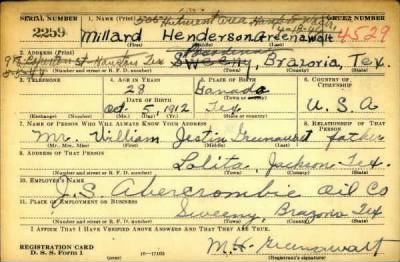 SERIAL NUMBER 1. NAME (Print) ORDER NUMBER
2259 Millard Henderson Greenawalt 4529
(First) (Middle) (Last)
2. ADDRESS (Print)
Sweeny, Brazoria, Tex.
(Number and street or R. F. D. number) (Town) (County) (State)
3. TELEPHONE 4. AGE IN YEARS 5. PLACE OF BIRTH 6. COUNTRY OF CITIZENSHIP
28 Ganado
DATE OF BIRTH
Oct 5, 1912 Tex U. S. A
(Mo.) (Day) (Yr.) (State or country)
7. NAME OF PERSON WHO WILL ALWAYS KNOW YOUR ADDRESS 8. RELATIONSHIP OF THAT PERSON
Mr. William Jestin Greenawalt father
(Mr., Mrs., Miss) (First) (Middle) (Last)
9. ADDRESS OF THAT PERSON
Lolita, Jackson Tex.
(Number and street or R. F. D. number) (Town) (County) (State)
10. EMPLOYER'S NAME
J. S. Abercrombie Oil Co
11. PLACE OF EMPLOYMENT OR BUSINESS
Sweeny, Brazoria Tex
(Number and street or R. F. D. number) (Town) (County) (State)
I AFFIRM THAT I HAVE VERIFIED ABOVE ANSWERS AND THAT THEY ARE TRUE.
REGISTRATION CARD
D. S. S. Form 1 M. H. Greenawalt
(Registrant's signature)